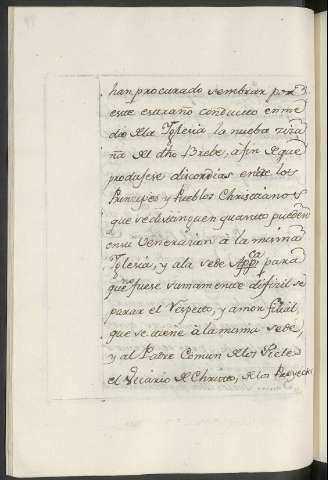 han procurado sembrar por
este estraño conducto enme
dio de la Yglesia la nueba ziza
ña del dho Brebe, a fin de que
produgese discordias entre los
Principes y Pueblos Christianos
que se distinguen quanto pueden
en su veneracion à la misma
Yglesia, y a la sede Appca para
que ne fuese sumamente dificil se
parar el respeto, y amor filial,
que se tiene à la misma sede,
y al Padre Comun de los Fieles
el Vicario de Christo, de los Proyecto